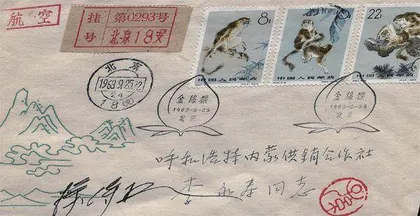 航空
挂 第0293号
号 北京18支
8分
中国人民邮政
中国人民邮政
22
中国人民邮政
北京
1963.9.25.
18(支)
金絲猴
1963-9-25
北京
金絲猴
1963-9-25
北京
呼和浩特内蒙供销合作社
李永春同志